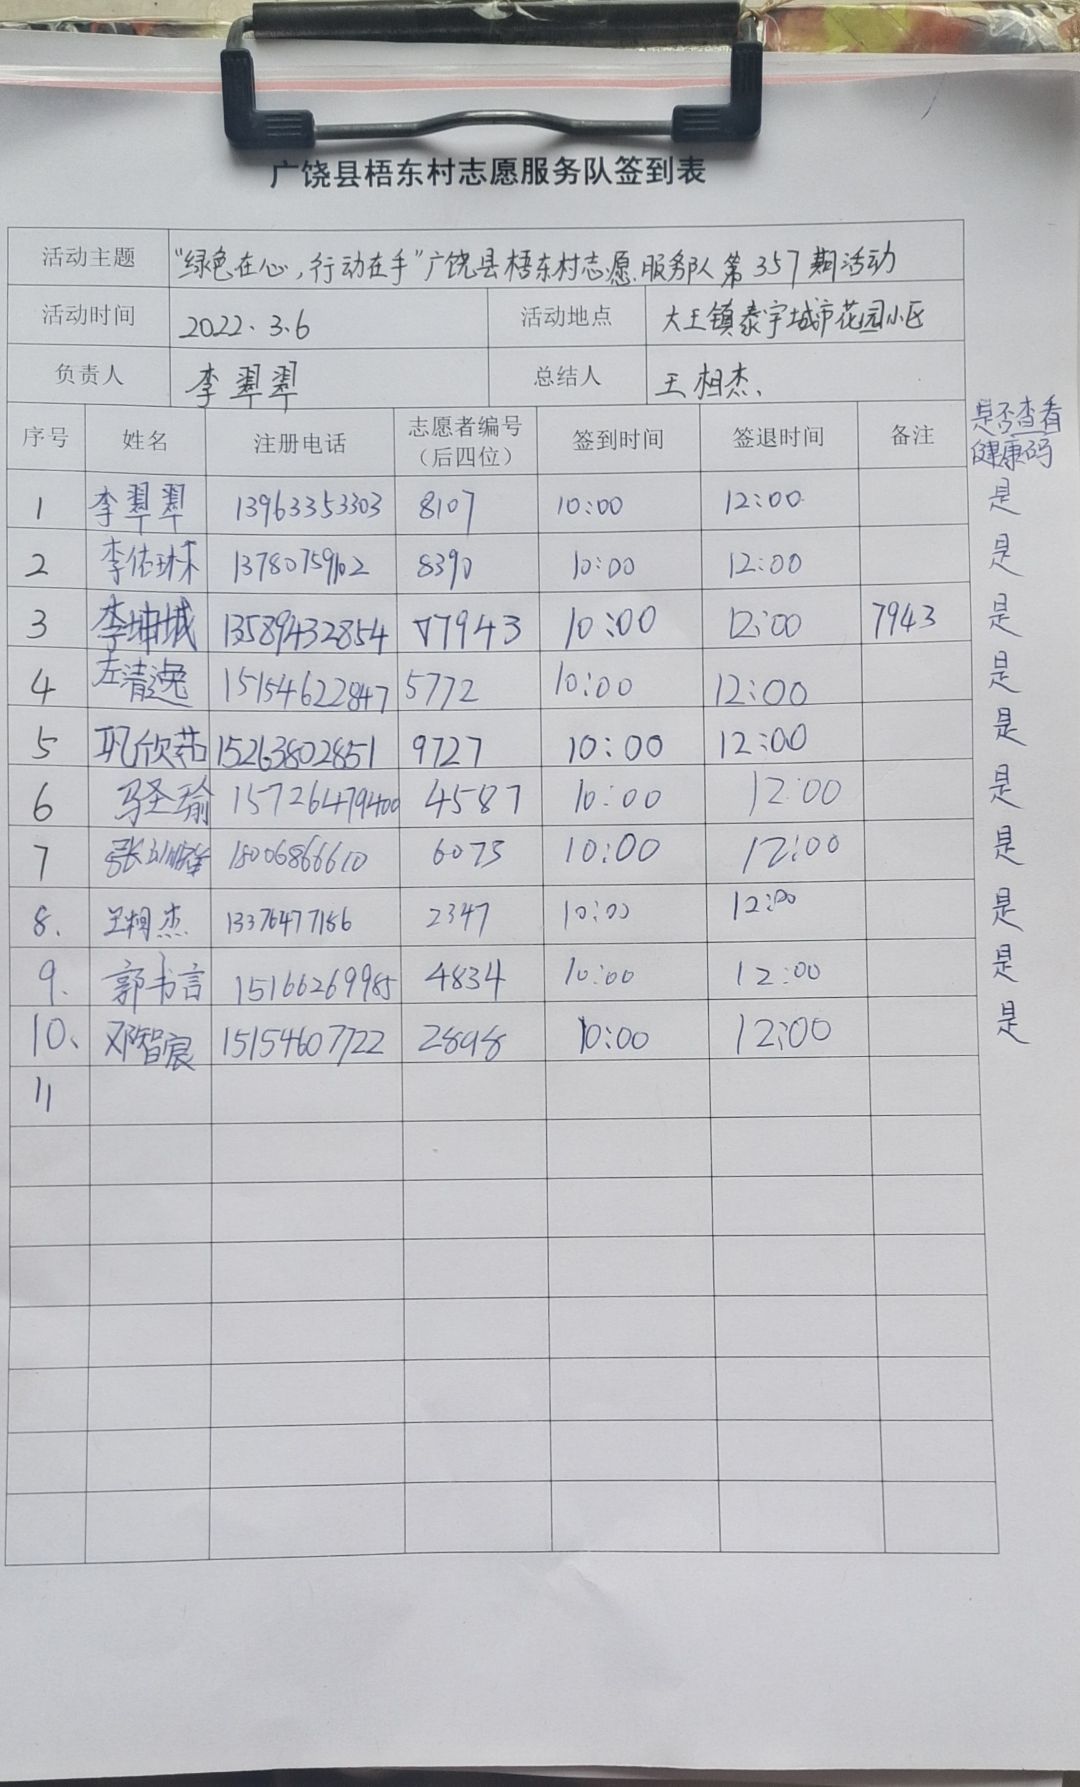 广饶县梧东村志愿服务队签到表
活动主题 "绿色在心,行动在手"广饶县梧东村志愿服务队第357期活动
活动时间 2022.3.6 活动地点 大王镇泰宇城市花园小区
负责人 李翠翠 总结人 王相杰.
序号 姓名 注册电话 志愿者编号(后四位) 签到时间 签退时间 备注 是否查看健康码
1 李翠翠 13963353303 8107 10:00 12:00 是
2 李佑琳 13780759102 8390 10:00 12:00 是
3 李坤城 13589432854 7943 10:00 12:00 7943 是
4 左清逸 15154622847 5772 10:00 12:00 是
5 巩欣茹 15263802851 9727 10:00 12:00 是
6 马圣瑜 15726479400 4587 10:00 12:00 是
7 18006866610 6075 10:00 12:00 是
8. 王相杰 13376477186 2347 10:00 12:00 是
9. 郭书言 15166269985 4834 10:00 12:00 是
10、 邓智宸 15154607722 2898 10:00 12:00 是
11